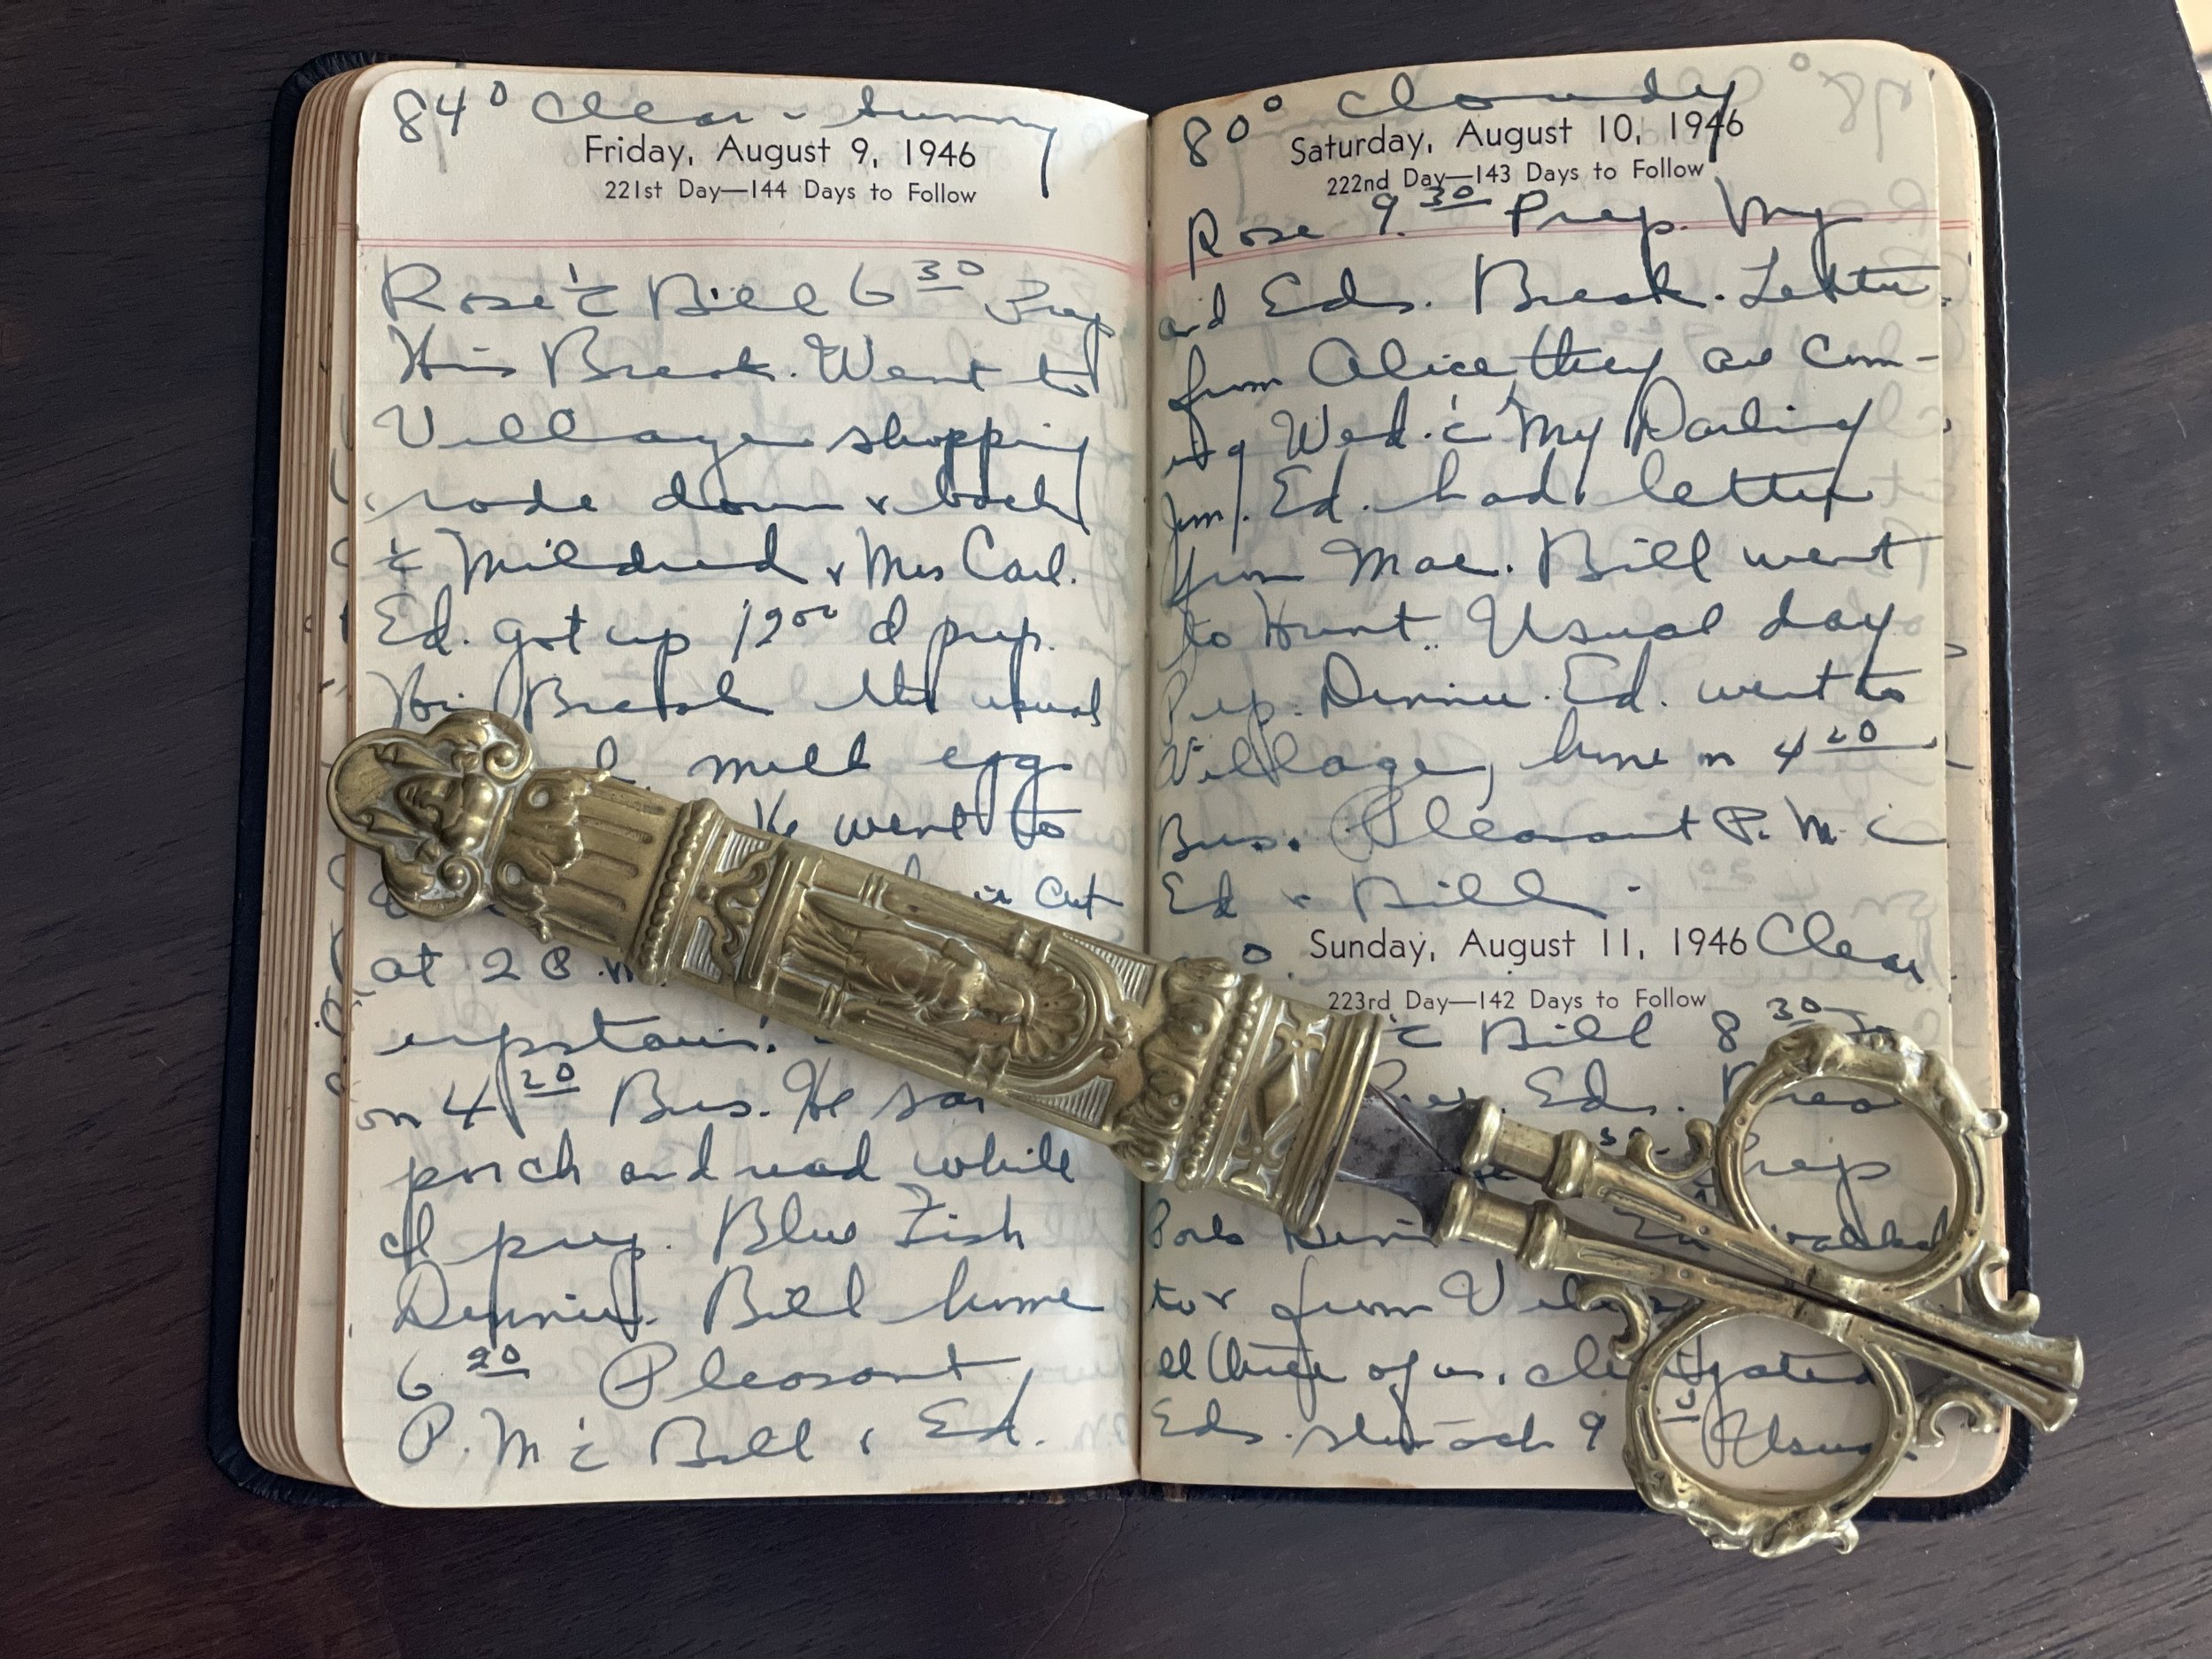 84° Clear - Sunny
Friday, August 9, 1946
221st Day—144 Days to Follow
Rose c̄ Bill 6 30 Prep
His Break. Went to
Village shopping
rode down & back
c̄ Mildred & Mrs Carl.
Ed. got up 12 00 I prep.
His Break the usual
milk egg
He went to
cut
at 2 P.M.
upstairs.
on 4 20 Bus. He sat
porch and read while
I prep. Blue Fish
Dinner. Bill home
6 20 Pleasant
P.M c̄ Bill & Ed.
80° Cloudy
Saturday, August 10, 1946
222nd Day—143 Days to Follow
Rose 9. 30 Prep. My
and Eds. Break. Letter
from Alice they are com-
ing Wed. c̄ My Darling
Jim. Ed. had letter
from Mae. Bill went
to Hunt. Usual day
Prep. Dinner. Ed. went to
Village, home on 4 20
Bus. Pleasant P.M. c̄
Ed & Bill.
Sunday, August 11, 1946 Clear
223rd Day—142 Days to Follow
c̄ Bill 8 30
Eds.
Prep
to & from
all three of us.
Eds. 9